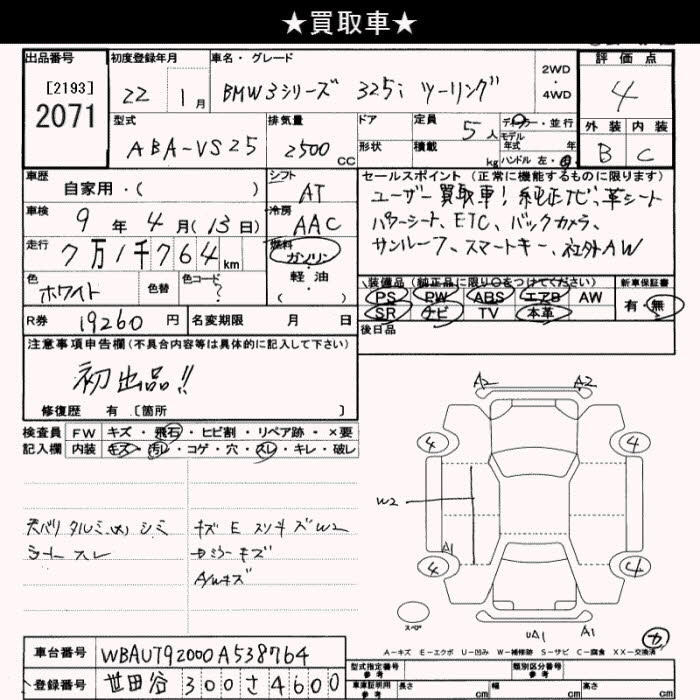 ★買取車★
出品番号
[2193]
2071
初度登録年月
22 1月
車名・グレード
BMW3シリーズ 325i ツーリング
2WD
・
4WD
評価点
4
外装 内装
B C
型式
ABA-VS25
排気量
2500 CC
ドア
形状
定員
5人
積載
kg
ディーラー・並行
モデル
年式 年
ハンドル 左・右
車歴
自家用・( )
シフト
AT
車検
9年4月(13日)
冷房
AAC
走行
7万1千764km
燃料
ガソリン
・
軽・油
( ・ )
色
ホワイト
色替
色コード
?
R券 19260円
名変期限 月 日
セールスポイント (正常に機能するものに限ります)
ユーザー買取車! 純正ナビ、革シート
パワーシート、ETC、バックカメラ、
サンルーフ、スマートキー、社外AW
装備品(純正品に限り○をつけてください)
新車保証書
PS PW ABS エアB AW
SR ナビ TV 本革
有・無
後日品
注意事項申告欄(不具合内容等は具体的に記入して下さい)
初出品!!
修復歴 有 .[箇所 ]
検査員 FW キズ・飛石・ヒビ割・リペア跡・×要
記入欄 内装 キズ・汚レ・コゲ・穴・スレ・キレ・破レ
天バリ タルミ シミ
シート スレ
キズ E スリキズ W2
ミラーキズ
A/Wキズ
A2 A2
4 4
W2
A1
4 4
スペア
UA1 A1
A-キズ E-エクボ U-凹み W-補修跡 S-サビ C-腐食 XX-交換済
車台番号 WBAUT92000A538764
登録番号 世田谷 300 さ 4600
型式指定番号
参考
類別区分番号
参考
車庫証明用
参考
長さ cm 幅 cm 高さ cm